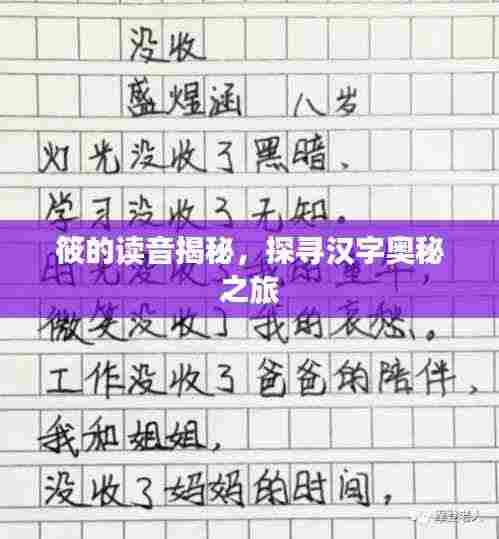 没收
盛煜涵 八岁
灯光没收了黑暗、
学习没收了无知。
筱的读音揭秘，探寻汉字奥秘
之旅
微笑没收了我的哀愁。
工作没收了爸爸的陪伴，
我和姐姐，
没收了妈妈的时间，